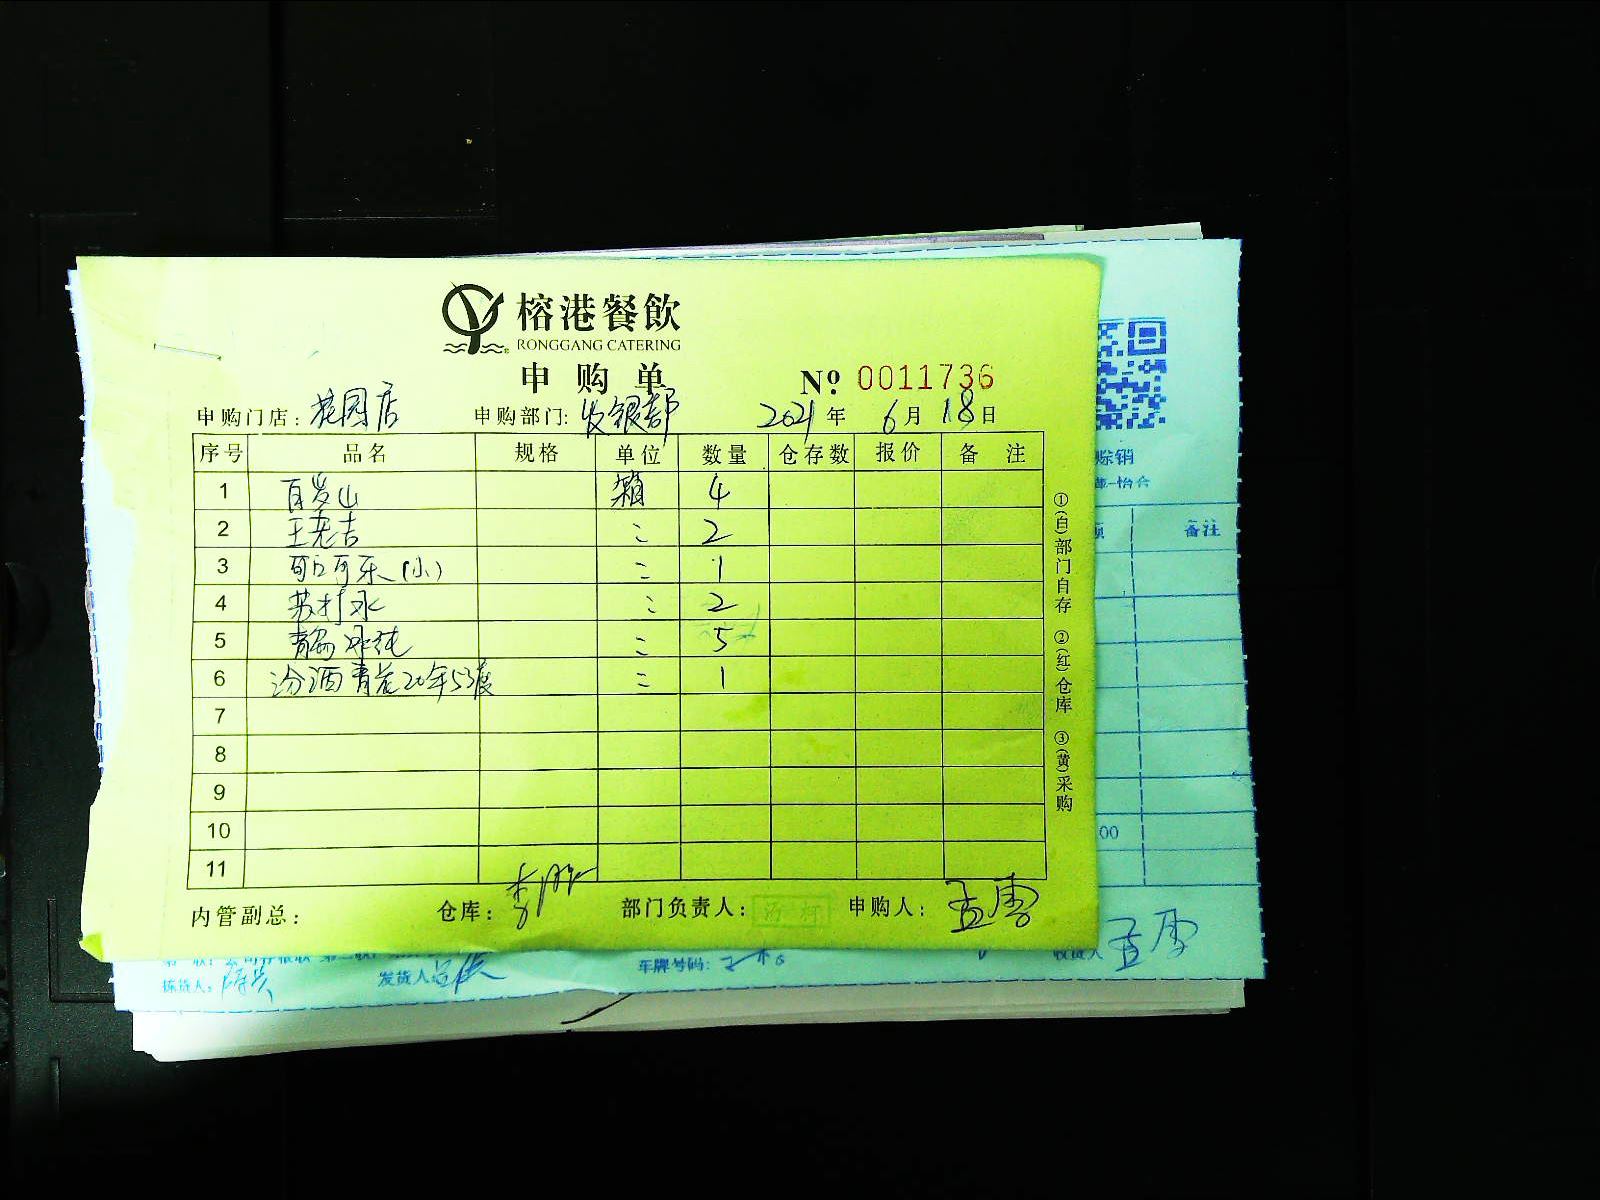 榕港餐飲
RONGGANG CATERING
申购单 № 0011736
申购门店: 花园店 申购部门: 收银部 2021年 6月 18日
序号 品名 规格 单位 数量 仓存数 报价 备 注
1 百岁山 箱 4
2 王老吉 〃 2
3 可口可乐(小) 〃 1
4 苏打水 〃 2
5 青岛冰纯 〃 5
6 汾酒青花20年53度 〃 1
7
8
9
10
11
内管副总: 仓库: 部门负责人: 申购人: 孟雪
①(白)部门自存 ②(红)仓库 ③(黄)采购
赊销
备注
00
拣货人: 发货人 车牌号码: 收货人 孟雪